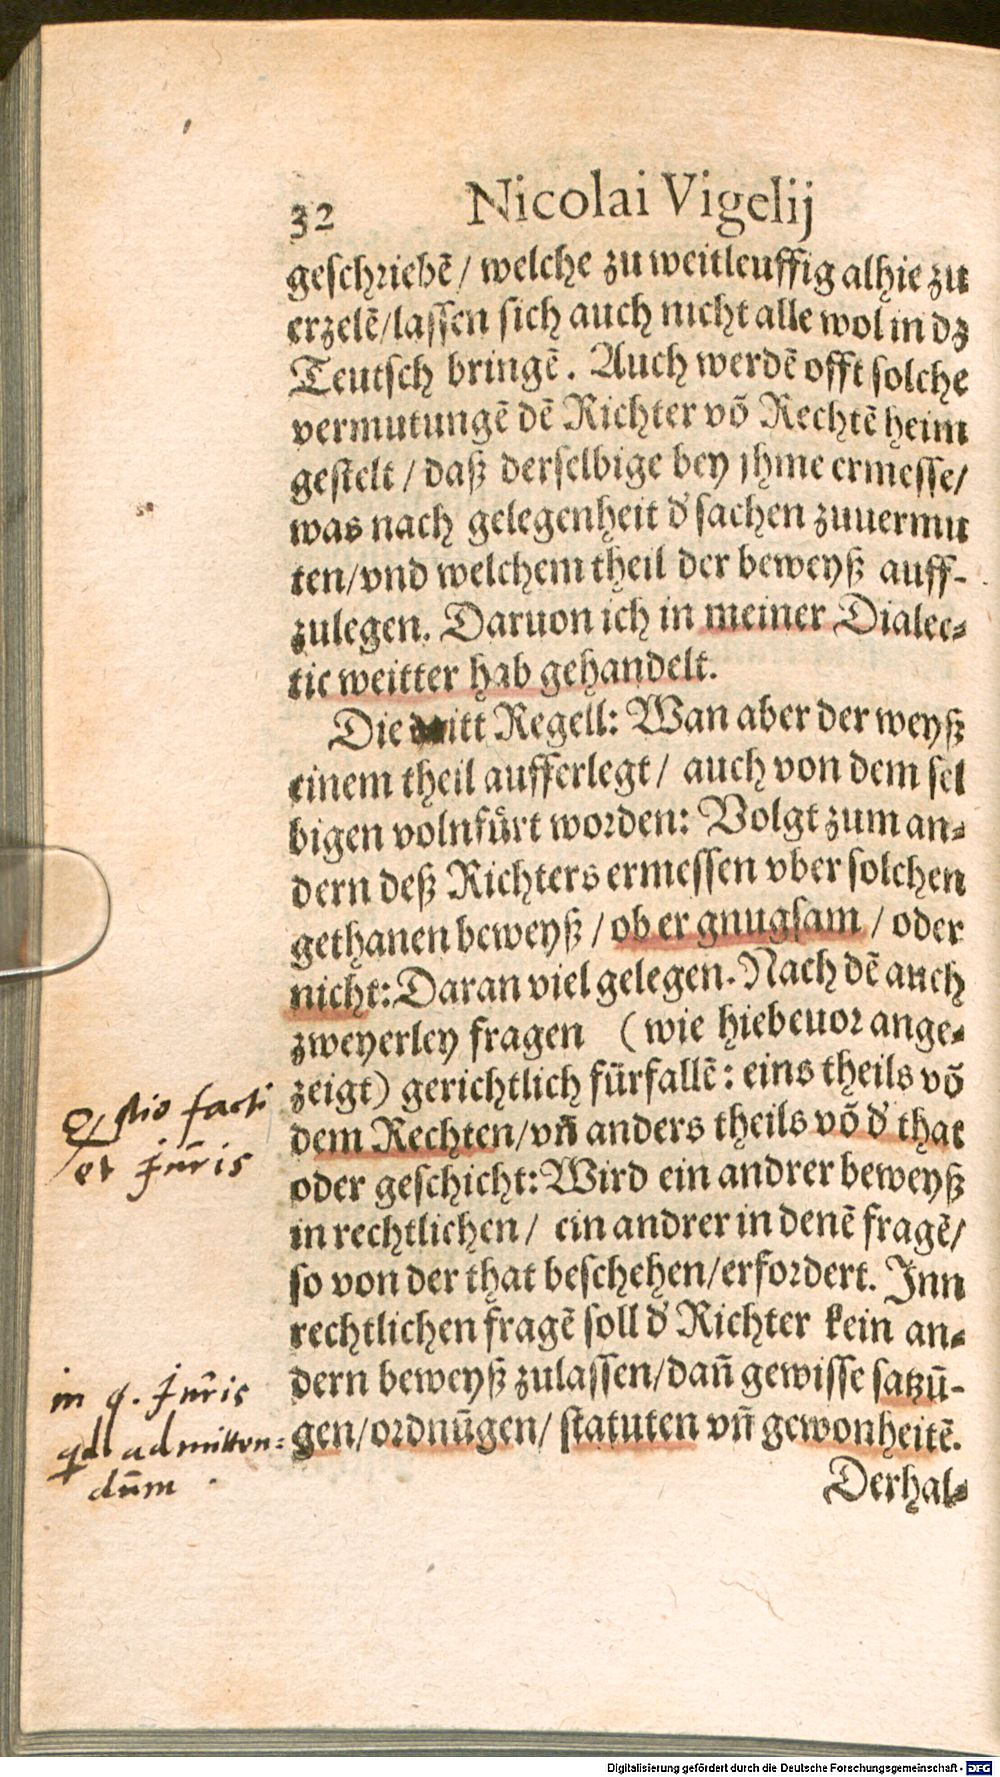 32 Nicolai Vigelij
geschriebē / welche zu weitleuffig alhie zu
erzelē/lassen sich auch nicht alle wol in dz
Teutsch bringē. Auch werdē offt solche
vermutungē dē Richter võ Rechtē heim
gestelt / daß derselbige bey jhme ermesse/
was nach gelegenheit d' sachen zuuermu
ten/vnd welchem theil der beweyß auff-
zulegen. Daruon ich in meiner Dialec-
tic weitter hab gehandelt.
Die dritt Regell: Wan aber der weyß
einem theil aufferlegt / auch von dem sel
bigen volnfürt worden: Volgt zum an-
dern deß Richters ermessen vber solchen
gethanen beweyß / ob er gnugsam / oder
nicht: Daran viel gelegen. Nach dē auch
zweyerley fragen (wie hiebeuor ange-
zeigt) gerichtlich fürfallē: eins theils võ
dem Rechten/vñ anders theils võ d' that
oder geschicht: Wird ein andrer beweyß
in rechtlichen / ein andrer in denē fragē/
so von der that beschehen/erfordert. Inn
rechtlichen fragē soll d' Richter kein an-
dern beweyß zulassen/dañ gewisse satzū-
gen/ordnūgen/ statuten vñ gewonheitē.
Derhal-
Qstio facti
et Juris
in q. Juris
qd admitten-
dum.
Digitalisierung gefördert durch die Deutsche Forschungsgemeinschaft - DFG